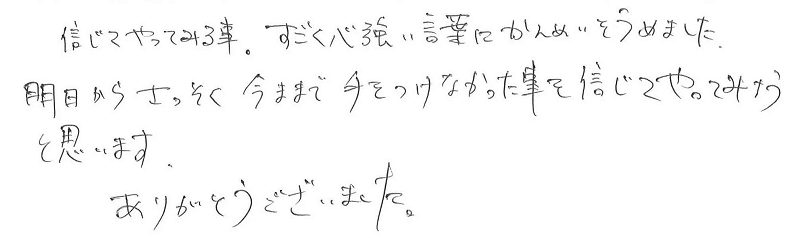 信じてやってみる事。すごく心強い言葉にかんめいをうめました.
明日からさっそく今まで手をつけなかった事を信じてやってみよう
と思います.
ありがとうございました。